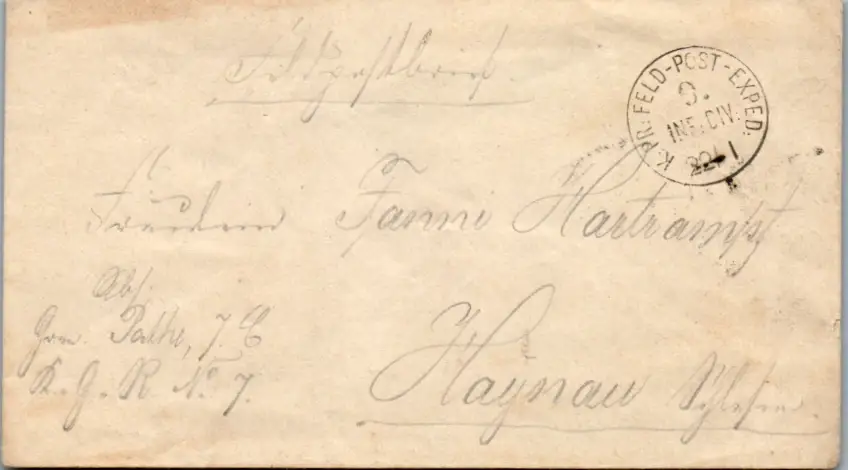 Feldpostbrief.
K. PR. FELD-POST-EXPED.
9.
INF. DIV.
22/1
Fräulein Fanni Hartrampf
Haynau Schlesien.
Abs.
Gren. Pathe, 7. C
K. G. R. No 7.